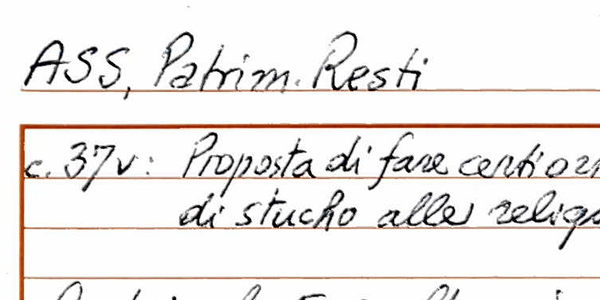 ASS, Patrim. Resti
c. 37v: Proposta di fare certi
di stucho alle